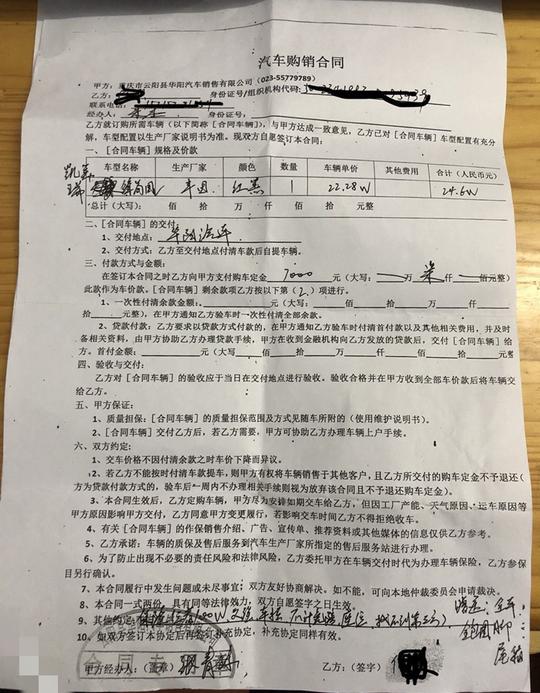 汽车购销合同
甲方：重庆市云阳县华阳汽车销售有限公司（023-55779789）
乙方： 身份证号/组织机构代码：
联系电话：
经办人： 身份证号：
乙方就订购所需车辆（以下简称［合同车辆］），与甲方达成一致意见，乙方已对［合同车辆］车型配置有充分
解，车型配置以生产厂家说明书为准。现双方自愿签订本合同：
一、［合同车辆］规格及价款
车型名称 生产厂家 颜色 数量 车辆单价 其他费用 合计（人民币元）
1 22.28W 24.6W
总计（大写）： 佰 拾 万 仟 佰 拾 元整
二、［合同车辆］的交付：
1、交付地点：
2、交付方式：乙方至交付地点付清车款后自提车辆。
三、付款方式与金额：
在签订本合同之时乙方向甲方支付购车定金 7000 元（大写： 万 柒 仟 佰元整）
此款作为车价款。［合同车辆］剩余款项乙方按以下第（2）项进行。
1、一次性付清余款金额： 元（大写： 佰 拾 万 仟 佰
拾 元整），在甲方通知乙方验车时一次性付清全部余款。
2、贷款付款：乙方要求以贷款方式付款的，在甲方通知乙方验车时付清首付款以及其他相关费用，并及时
备相关资料，由甲方协助乙方办理贷款手续，甲方在收到金融机构向乙方发放的贷款后，交付［合同车辆］给
方。首付金额： 元（大写： 佰 拾 万 仟 佰 拾 元整
四、验收与交付：
乙方对［合同车辆］的验收应于当日在交付地点进行验收。验收合格并在甲方收到全部车价款后将车辆交
给乙方。
五、甲方保证：
1、质量担保：［合同车辆］的质量担保范围及方式见随车所附的（使用维护说明书）。
2、［合同车辆］交付乙方后，若乙方需要，甲方可协助乙方办理车辆上户手续。
六、双方约定：
1、交车价格不因付清余款之时车价下降而异议。
2、若乙方不能按时付清车款提车，则甲方有权将车辆销售于其他客户，且乙方所交付的购车定金不予退还（
方为贷款付款方式的，验车后一周内不办理相关手续则视为放弃该合同且不予退还购车定金）。
3、本合同生效后，乙方定购车辆，甲方尽力安排如期交车给乙方，但因工厂产能、天气原因、运车原因等
甲方原因影响甲方交付，乙方同意甲方变更履行，若影响交车时间乙方不得拒绝收车。
4、有关［合同车辆］的作保销售介绍、广告、宣传单、推荐资料或其他媒体的信息仅供乙方参考。
5、乙方承诺：车辆的质保及售后服务到汽车生产厂家所指定的售后服务站进行办理。
6、为了防止出现不必要的责任风险和法律风险，乙方委托甲方在车辆交付时代为办理车辆保险，乙方参保
目另行确认。
7、本合同履行中发生问题或未尽事宜：双方友好协商解决。如不能，可向本地仲裁委员会申请裁决。
8、本合同一式两份，具有同等法律效力，双方自愿签字之日生效。
9、其他约定：
10、如双方签本协定后再签订补充协定，补充协定同样有效。
甲方经办人：（盖章） 乙方：（签字）